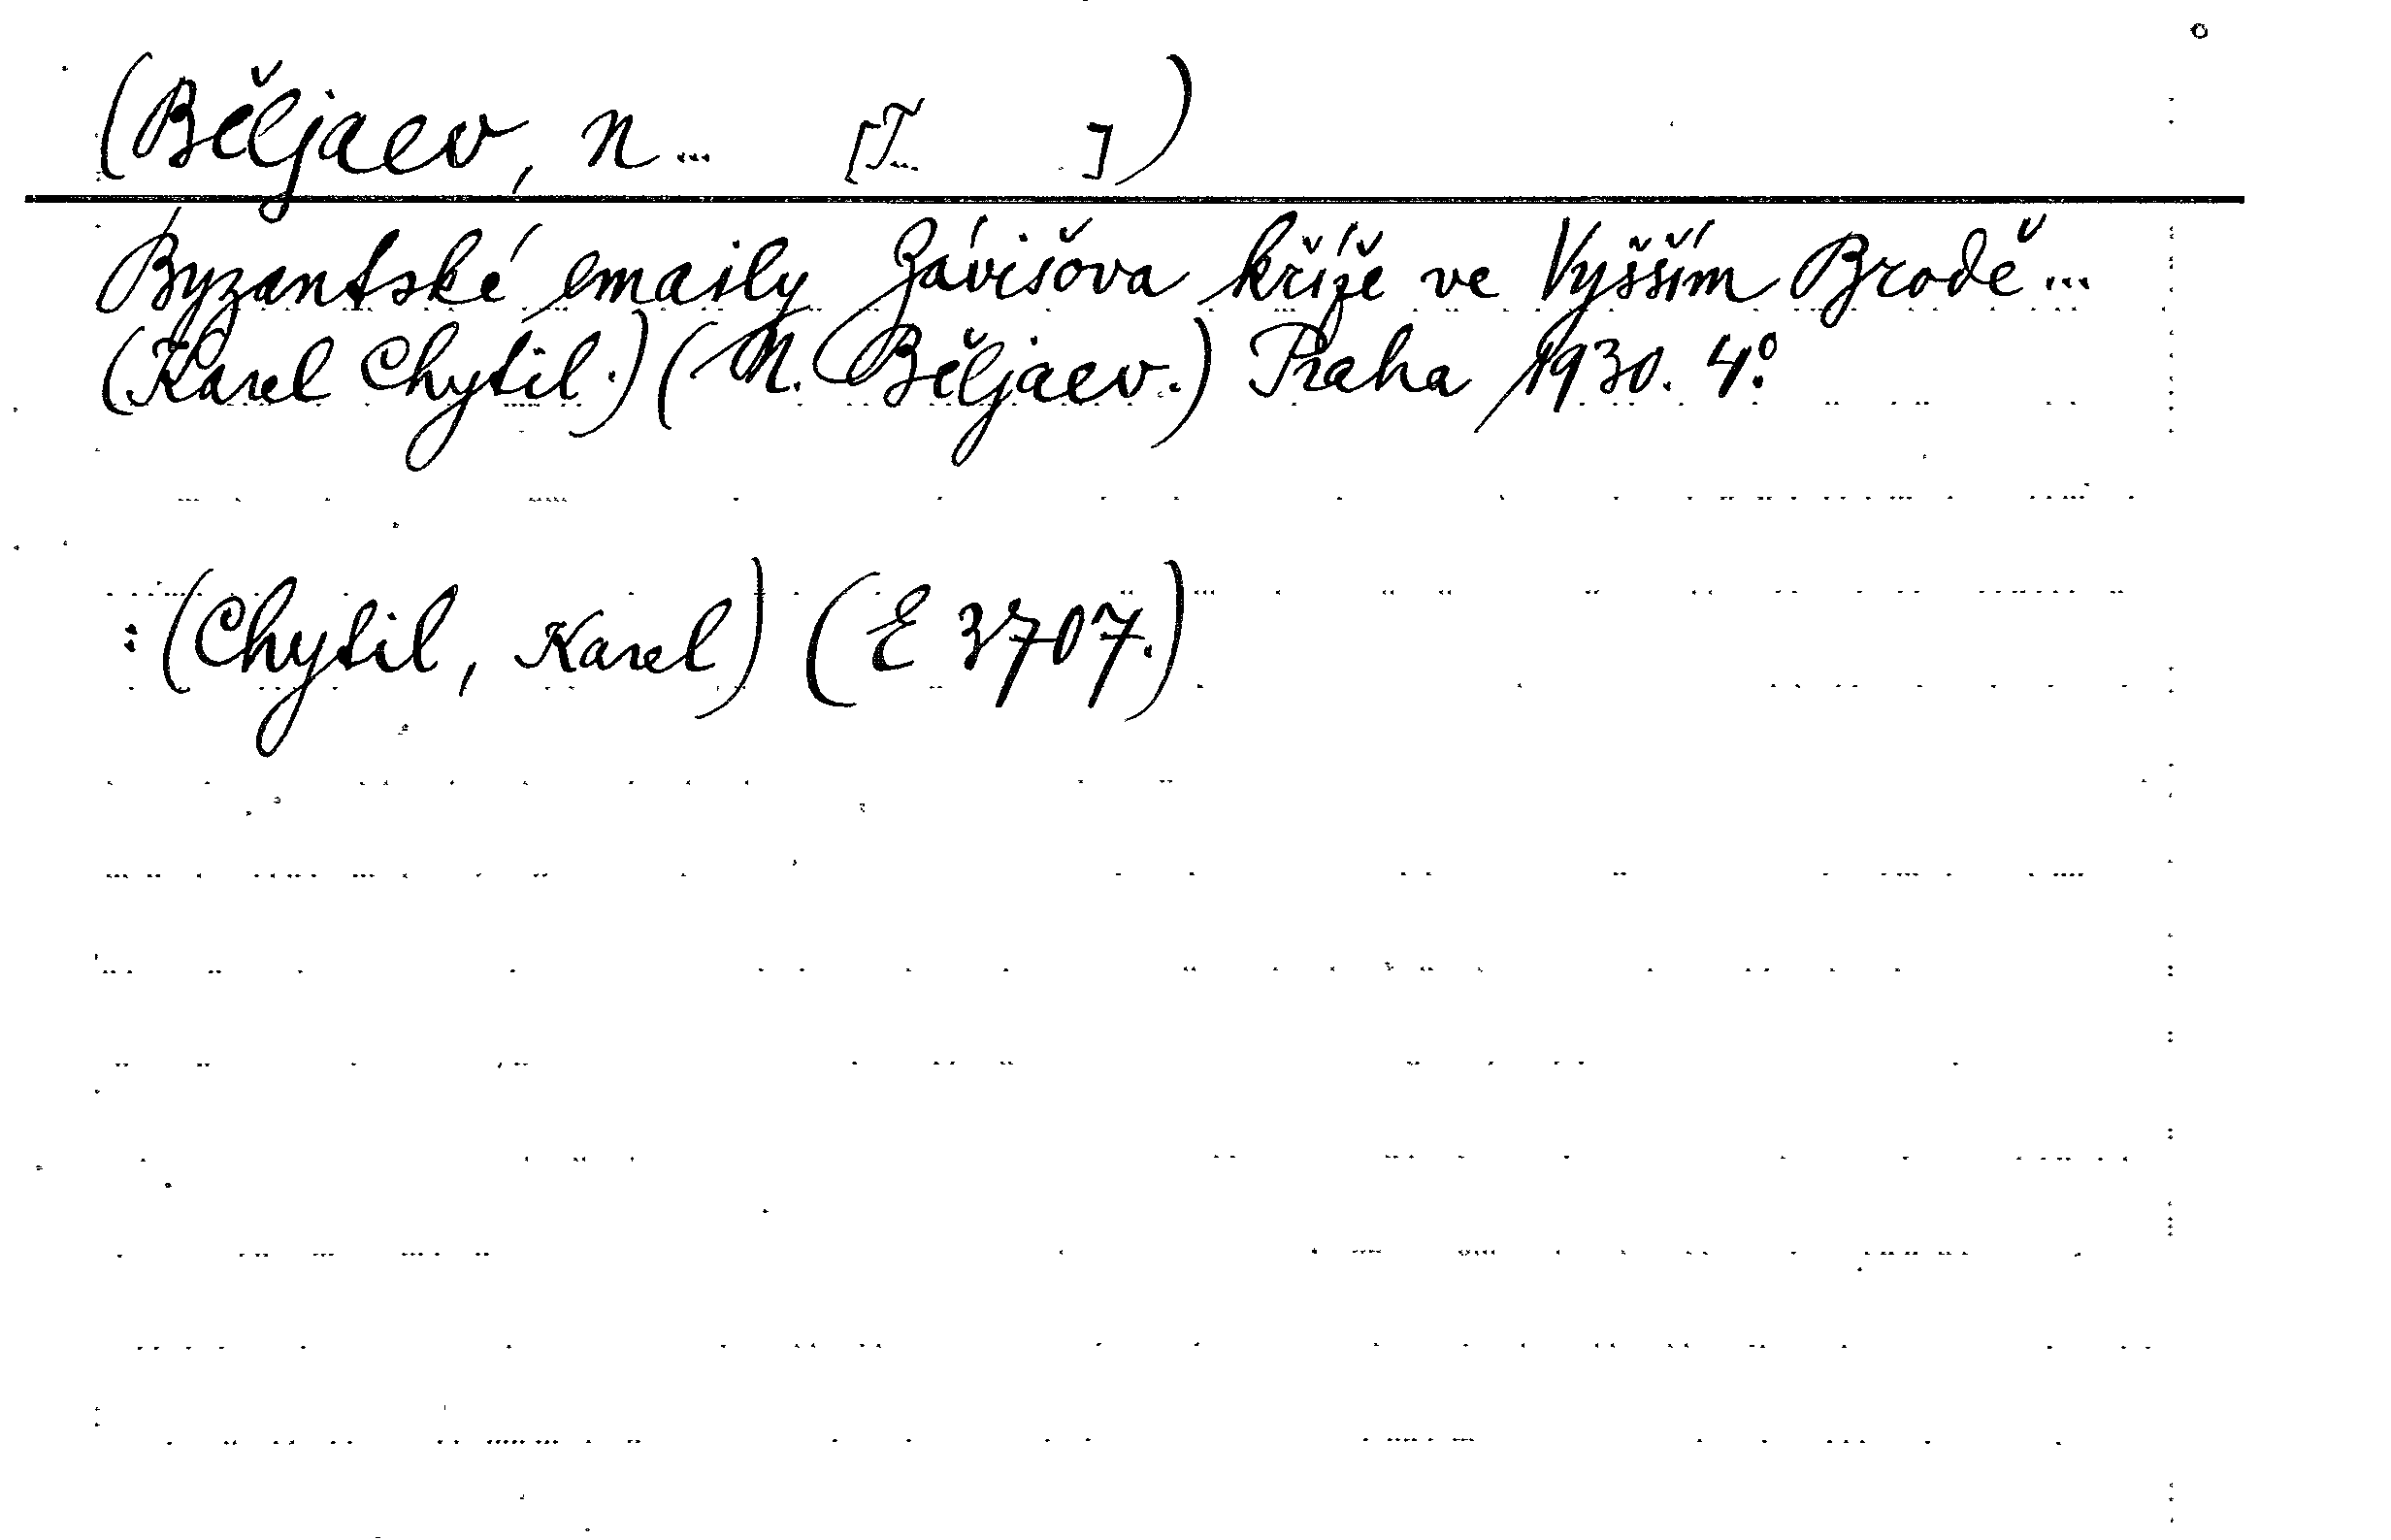 (Běljaev, N... [T... ])
Byzantské emaily Závišova kříže ve Vyšším Brodě...
(Karel Chytil.) (N. Běljaev.) Praha 1930. 4°.
: (Chytil, Karel) (E 3707.)